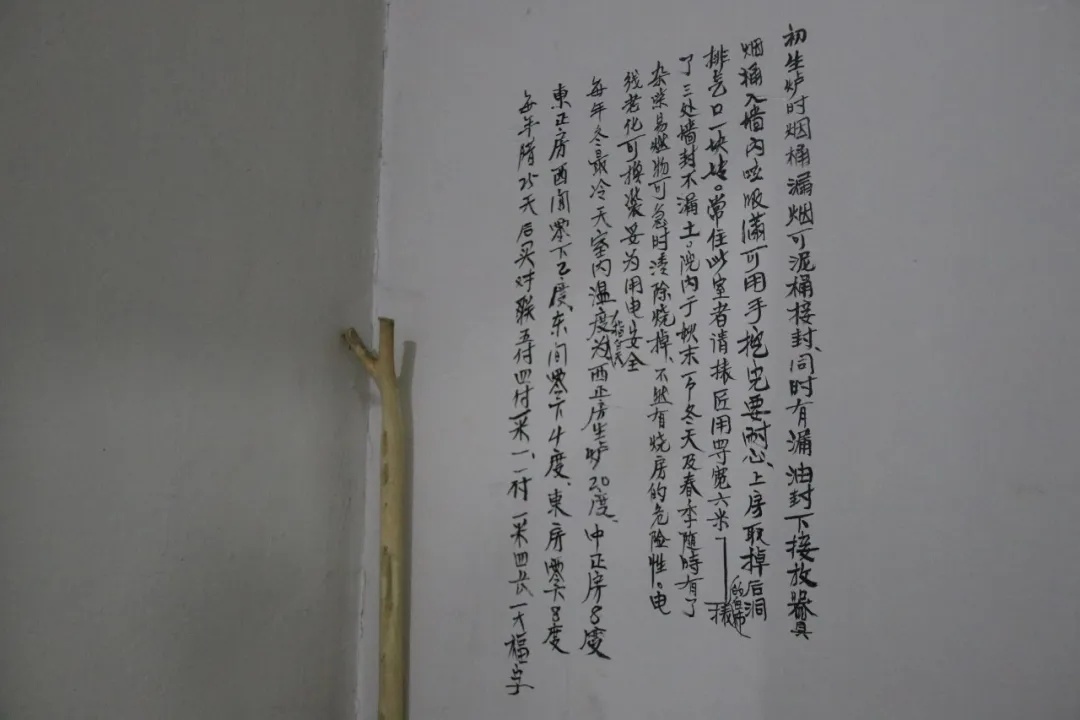 初生炉时烟桶漏烟可泥桶接封、同时有漏油封下接放器具
烟桶入墙内吱吸满可用手挖完要耐心、上房取掉后洞
排气口一块砖。常住此室者请裱匠用四宽六米的白布裱
了三处墙封不漏土。院内于秋末下冬天及春季随時有了
杂柴易燃物可急时清除烧掉、不然有烧房的危险性。电
线老化可换装妥为用电安全
每年冬最冷天室内温度为西正房生炉20度、中正房8度
東正房西间零下2度、东间零下4度、東房零下8度
每年腊25天后买对联五付四付一米一、一付一米四长一大福字